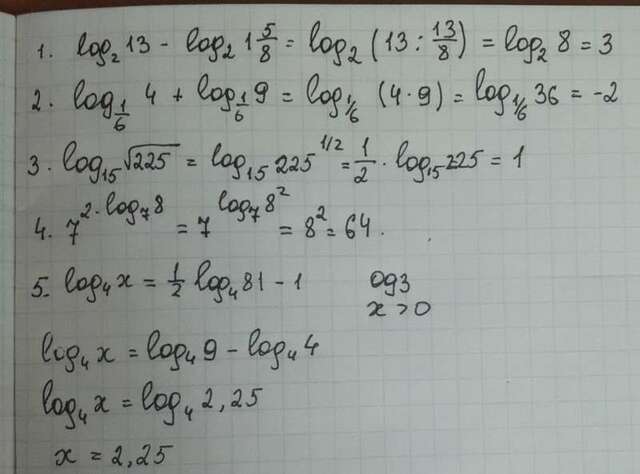 1. log₂ 13 - log₂ 1 5/8 = log₂ (13 : 13/8) = log₂ 8 = 3
2. log_{1/6} 4 + log_{1/6} 9 = log_{1/6} (4·9) = log_{1/6} 36 = -2
3. log₁₅ √225 = log₁₅ 225^{1/2} = 1/2 · log₁₅ 225 = 1
4. 7^{2·log₇8} = 7^{log₇8²} = 8² = 64.
5. log₄ x = 1/2 log₄ 81 - 1 одз
x > 0
log₄ x = log₄ 9 - log₄ 4
log₄ x = log₄ 2,25
x = 2,25